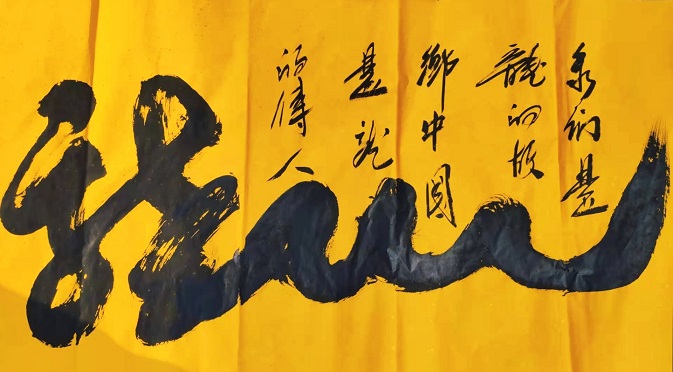 龍
是
龍的故
鄉中國
是龍
的傳人